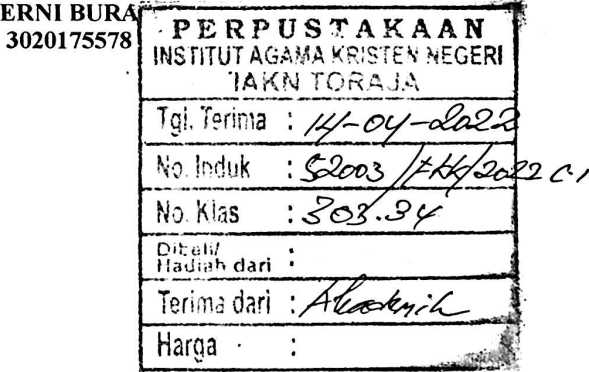 ERNI BURA
3020175578
PERPUSTAKAAN
INSTITUT AGAMA KRISTEN NEGERI
IAKN TORAJA
Tgl. Terima : 14-04-2022
No. Induk : S2003 / / 2022 C.1
No. Klas : 303.34
Dibeli/
Hadiah dari :
Terima dari : Akademik
Harga :